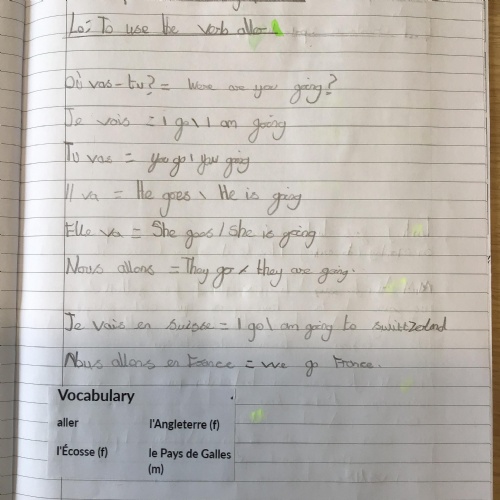 Lo: To use the verb aller
Où vas-tu? = Were are you going?
Je vais = I go \ I am going
Tu vas = you go \ you going
Il va = He goes \ He is going
Elle va = She goes / she is going
Nous allons = They go / they are going.
Je vais en Suisse = I go \ am going to switzeland
Nous allons en France = we go France.
Vocabulary
aller l'Angleterre (f)
l'Écosse (f) le Pays de Galles
(m)